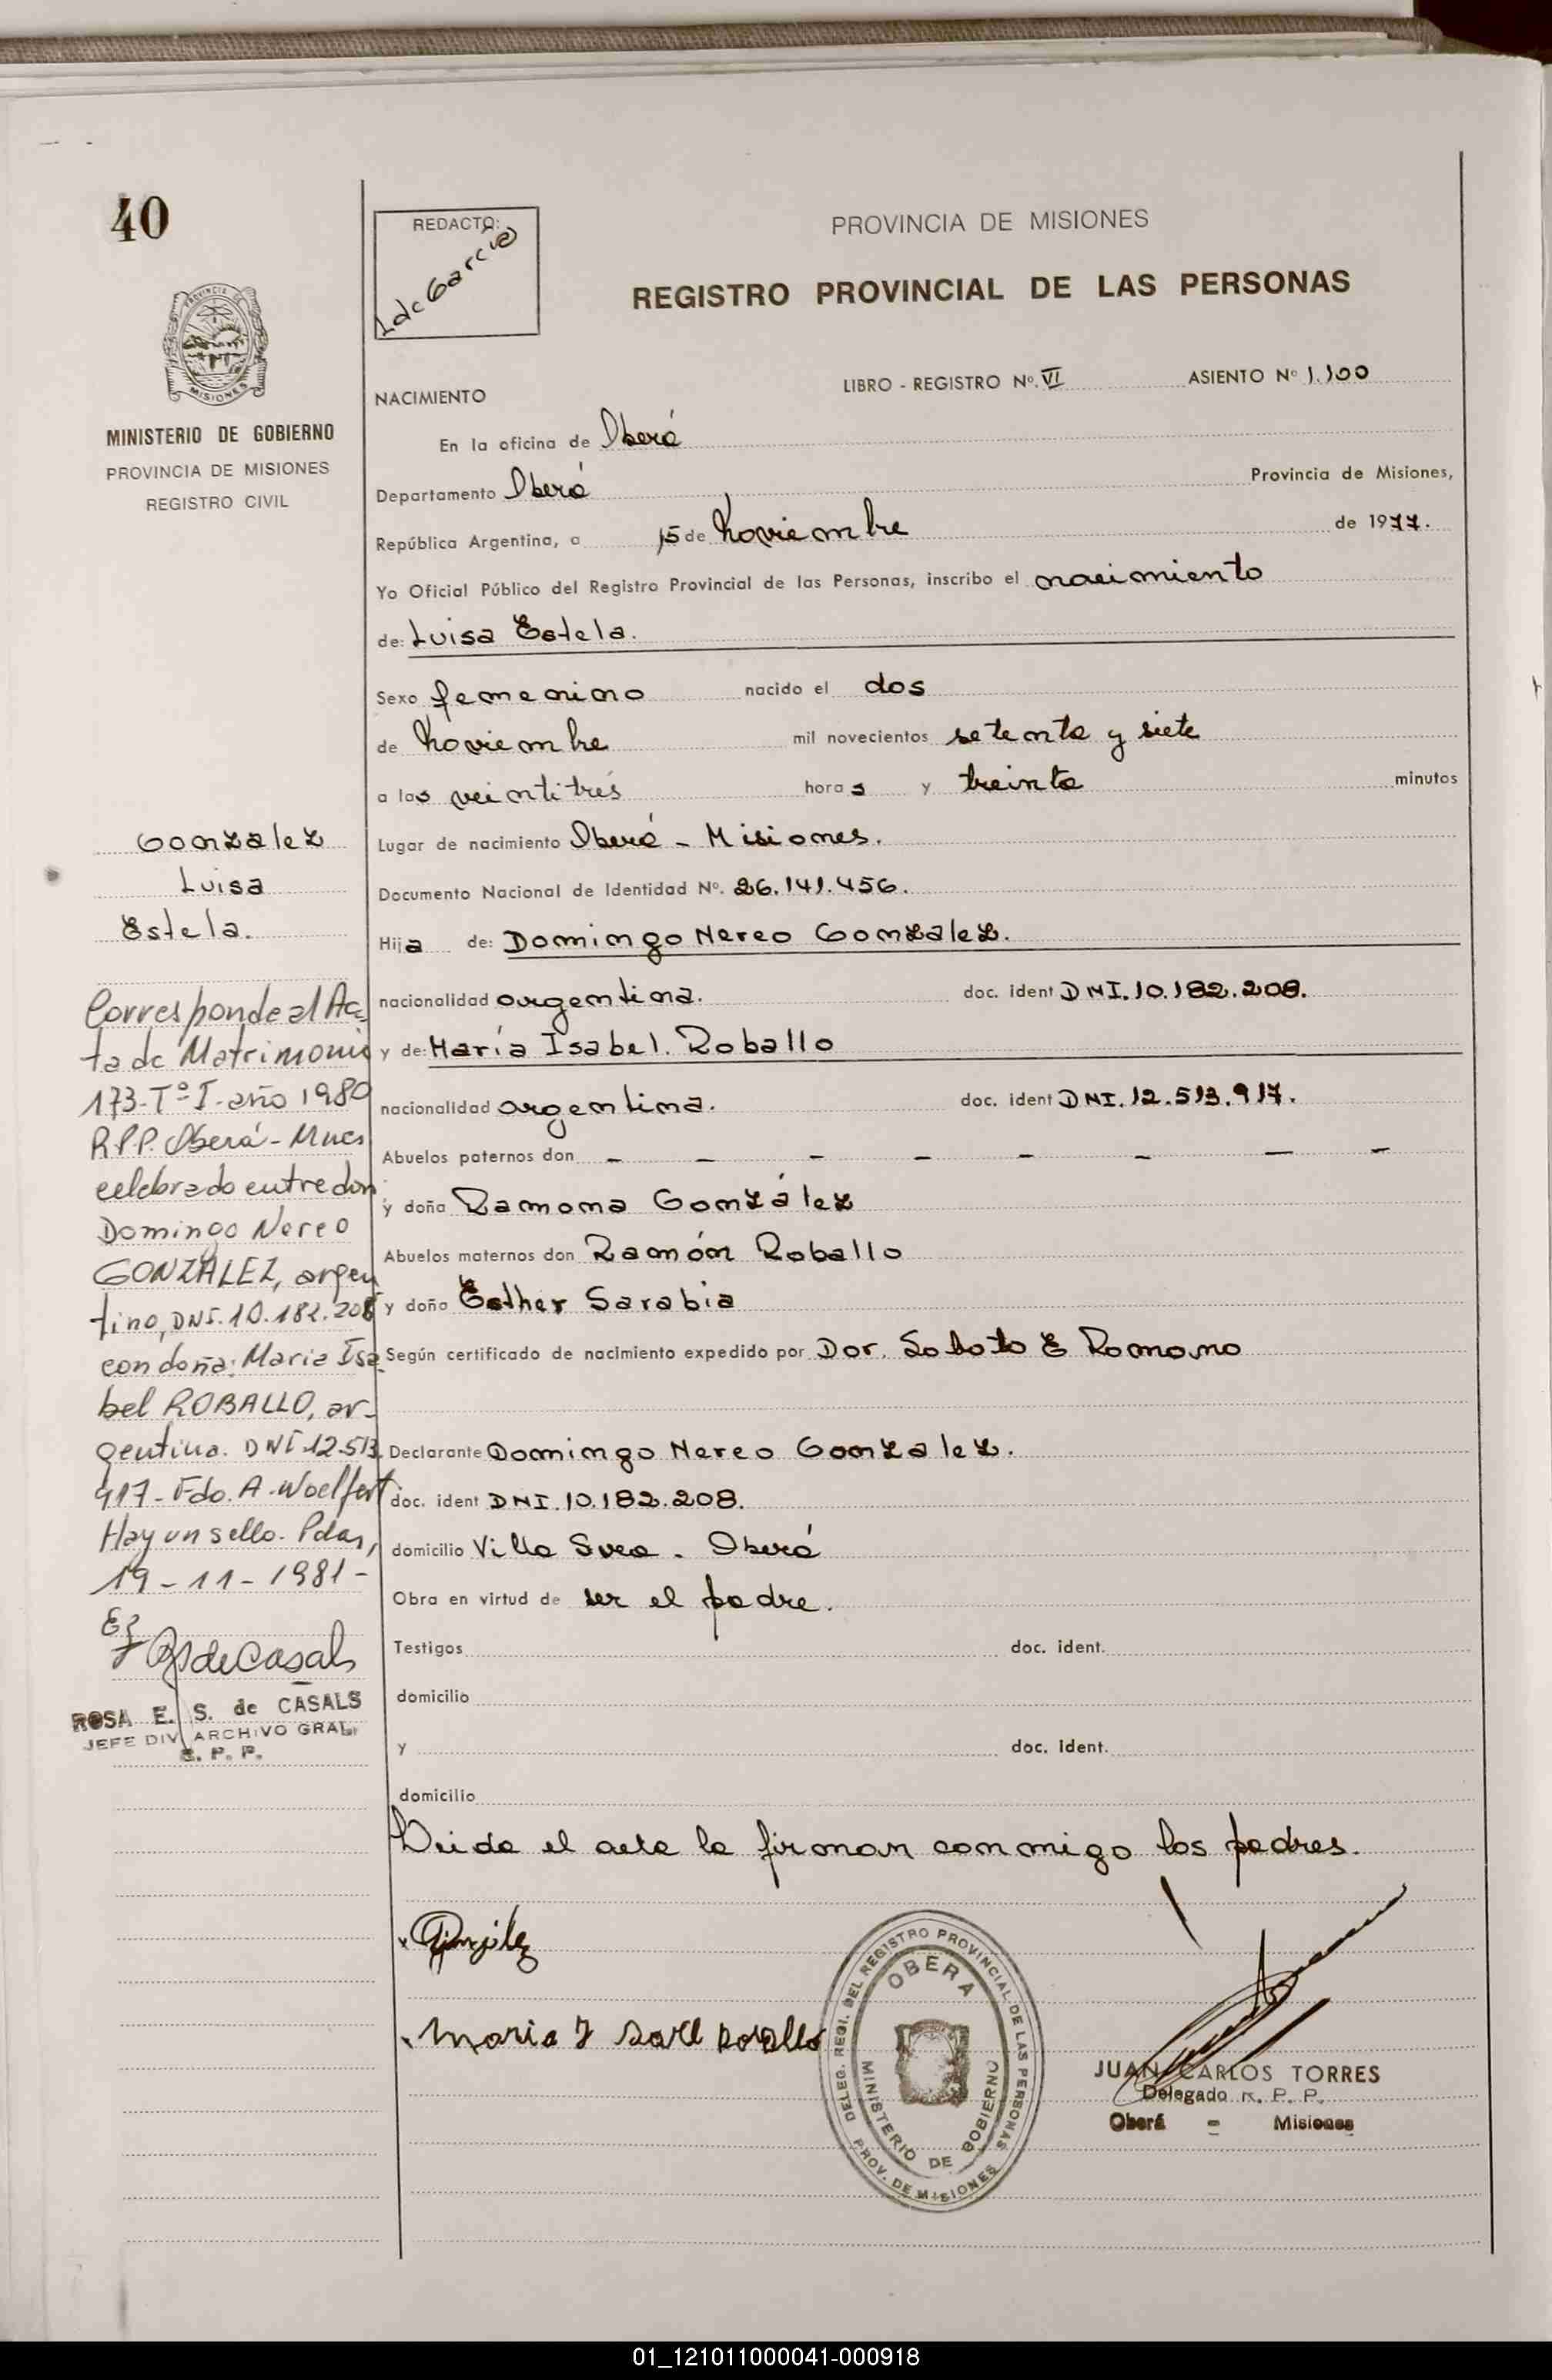 40
REDACTO:
L de Garcia
PROVINCIA DE MISIONES
REGISTRO PROVINCIAL DE LAS PERSONAS
PROVINCIA DE
MISIONES
MINISTERIO DE GOBIERNO
PROVINCIA DE MISIONES
REGISTRO CIVIL
NACIMIENTO
LIBRO - REGISTRO Nº. VI ASIENTO Nº 1.100
En la oficina de Oberá
Departamento Oberá Provincia de Misiones,
República Argentina, a 15 de Noviembre de 1977.
Yo Oficial Público del Registro Provincial de las Personas, inscribo el nacimiento
de: Luisa Estela.
Sexo femenino nacido el dos
de Noviembre mil novecientos setenta y siete
a las veintitrés horas y treinta minutos
Lugar de nacimiento Oberá - Misiones.
Documento Nacional de Identidad Nº. 26.141.456.
Hija de: Domingo Nereo Gonzalez.
nacionalidad argentina. doc. ident DNI. 10.182.208.
y de: María Isabel. Roballo
nacionalidad argentina. doc. ident DNI. 12.513.917.
Abuelos paternos don - - - - - - - -
y doña Ramona González
Abuelos maternos don Ramón Roballo
y doña Esther Sarabia
Según certificado de nacimiento expedido por Dor. Romano
Declarante Domingo Nereo Gonzalez.
doc. ident DNI. 10.182.208.
domicilio Villa Svea - Oberá
Obra en virtud de ser el padre.
Testigos doc. ident.
domicilio
y doc. ident.
domicilio
Leida el acta la firman conmigo los padres.
Gonzalez
Luisa
Estela.
Corresponde al Ac-
ta de Matrimonio
173-Tº I-año 1980
R.P.P. Oberá - Mnes
celebrado entre don
Domingo Nereo
GONZALEZ, argen
tino, DNI. 10.182.208
con doña: Maria Isa
bel ROBALLO, ar-
gentina. DNI 12.513.
917- Fdo. A. Woelfert
Hay un sello. Pdas,
19-11-1981-
RdeCasals
ROSA E. S. de CASALS
JEFE DIV. ARCHIVO GRAL.
R. P. P.
Maria I Roballo
DELEG. REGI. DEL REGISTRO PROVINCIAL DE LAS PERSONAS
OBERA
MINISTERIO DE GOBIERNO
PROV. DE MISIONES
JUAN CARLOS TORRES
Delegado R. P. P.
Oberá - Misiones
01_121011000041-000918